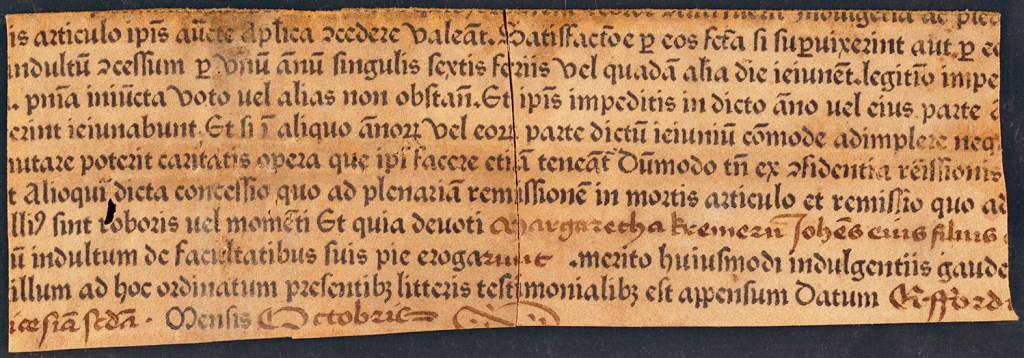 indulgētia ac plen
is articulo ip̄is auc̄te Ap̄lica ꝯcedere valeāt. Satisfactōe ꝑ eos fc̄ta si suꝑuixerint aut ꝑ eo
indultū ꝯcessum ꝑ vnū ānū singulis sextis feriis vel quadā alia die ieiunēt. legitīo impe
pn̄ia iniūcta voto uel alias non obstañ. Et ip̄is impeditis in dicto āno uel eius parte
erint ieiunabunt. Et si ī aliquo ānoꝝ vel eoꝝ parte dictū ieiuniū cōmode adimplere neq
mutare poterit caritatis opera que ip̄i facere etiā teneāt᷑ Dūmodo tn̄ ex ꝯfidentia rēissionis
t Alioqui dicta concessio quo ad plenariā remissionē in mortis articulo et remissio quo ad
lliꝰ sint roboris uel momēti Et quia deuoti Margarecha kremerin̄ Johēs eius filius
ū indultum de facultatibus suis pie erogarunt .merito huiusmodi indulgentiis gaude
illum ad hoc ordinatum presentibꝫ litteris testimonialibꝫ est appensum Datum Erffordi
icesiā scdā . Mensis Octobris